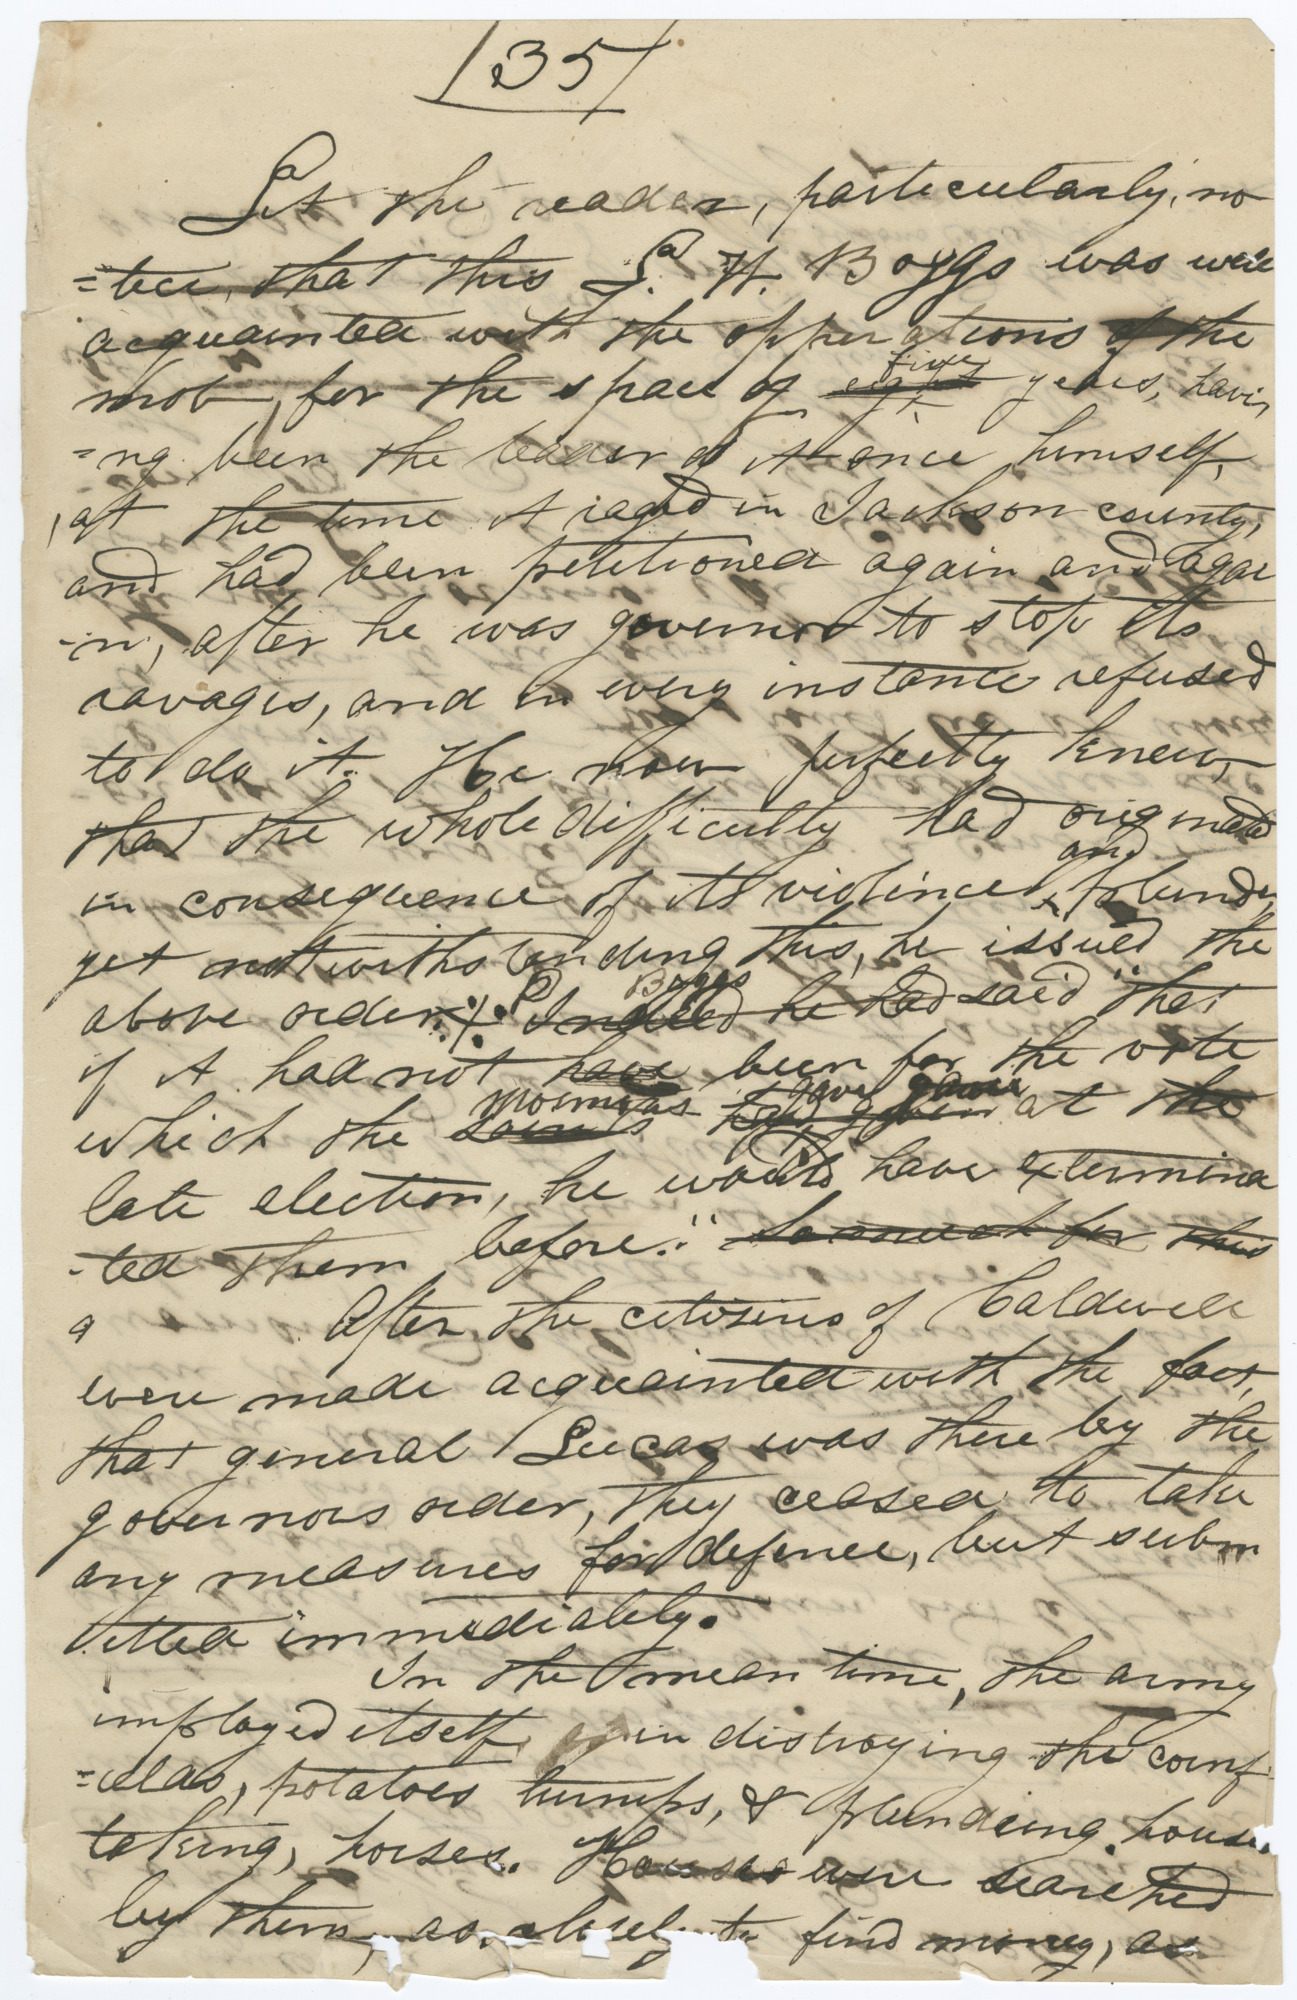 35
Let the reader, particularly, no
=tice, that this L. W. Boggs was well
acquainted with the opperations of the
mob, for the space of eight five years, havi
=ng been the leader of it once himself,
at the time it raged in Jackson county,
and had been petitioned again and agai
-n, after he was governor to stop its
ravages, and in every instance refused
to do it. He now perfectly knew,
that the whole difficulty had originated
in consequence of its violince and plunder,
yet notwithstanding this, he issued the
above order. Indeed he had Boggs said "that
if it had not have been for the vote
which the saints mormons had given gave at the
late election, he would have extermina
-ted them before." So much for this
After the citizens of Caldwell
were made acquainted with the fact,
that general Lucas was there by the
governors order, they ceased to take
any measures for defence, but subm
itted immediately.
In the mean time, the army
imployed itself, in distroying the cornf
=ields, potatoes turnips, & plundering houses
taking, horses. Houses were searched
by them, as closely to find money, as